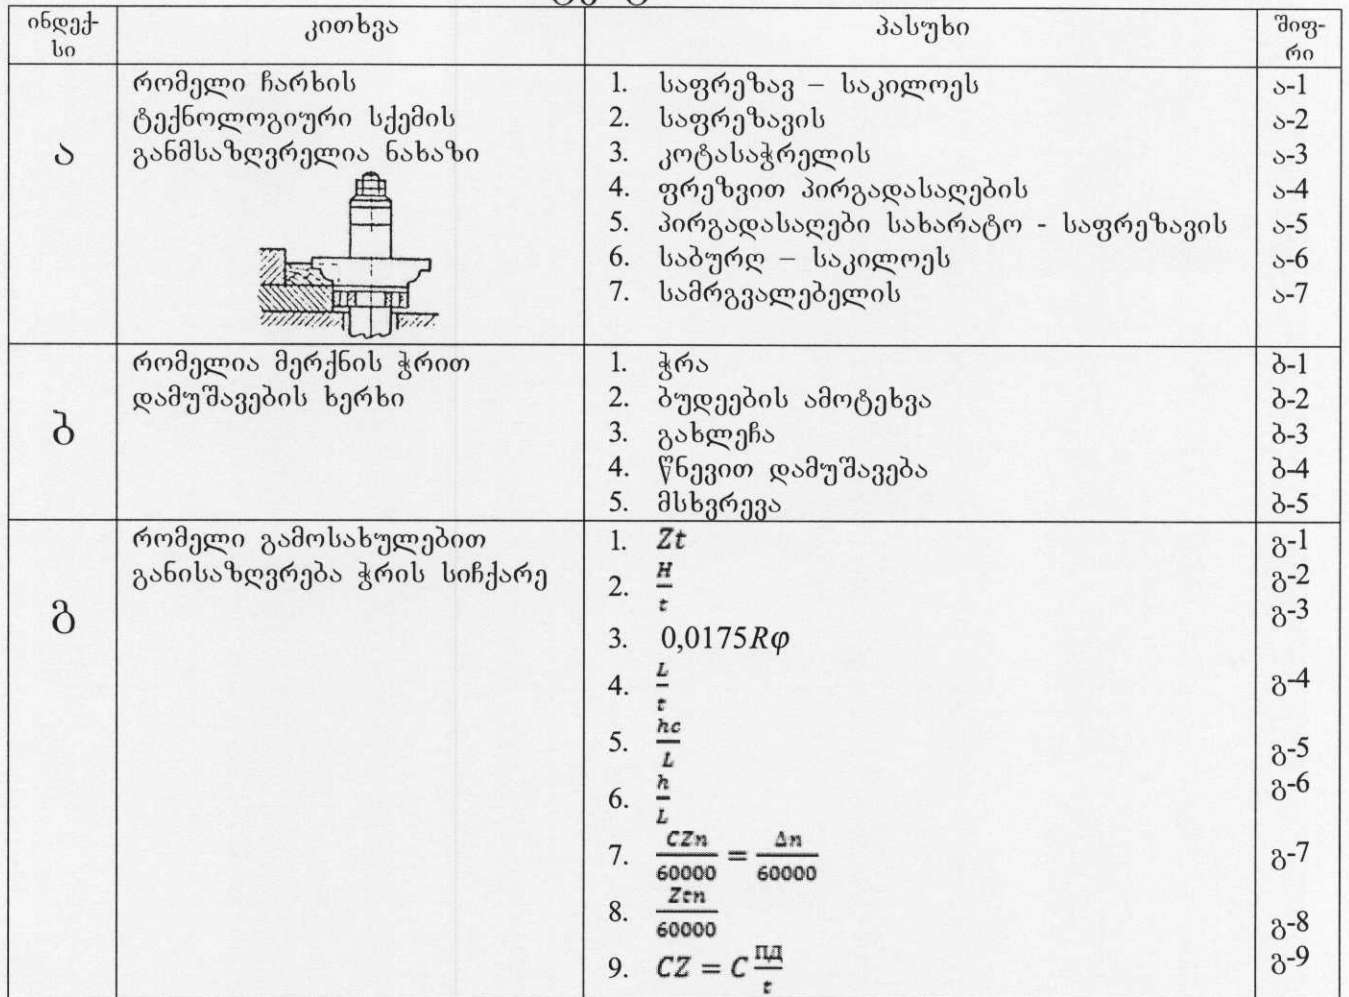 ინდექ-
სი
კითხვა
პასუხი
შიფ-
რი
ა
რომელი ჩარხის
ტექნოლოგიური სქემის
განმსაზღვრელია ნახაზი
1. საფრეზავ – საკილოეს
2. საფრეზავის
3. კოტასაჭრელის
4. ფრეზვით პირგადასაღების
5. პირგადასაღები სახარატო - საფრეზავის
6. საბურღ – საკილოეს
7. სამრგვალებელის
ა-1
ა-2
ა-3
ა-4
ა-5
ა-6
ა-7
ბ
რომელია მერქნის ჭრით
დამუშავების ხერხი
1. ჭრა
2. ბუდეების ამოტეხვა
3. გახლეჩა
4. წნევით დამუშავება
5. მსხვრევა
ბ-1
ბ-2
ბ-3
ბ-4
ბ-5
გ
რომელი გამოსახულებით
განისაზღვრება ჭრის სიჩქარე
1. Zt
2. H/t
3. 0,0175Rφ
4. L/t
5. hc/L
6. h/L
7. CZn/60000 = Δn/60000
8. Ztn/60000
9. CZ = C ПД/t
გ-1
გ-2
გ-3
გ-4
გ-5
გ-6
გ-7
გ-8
გ-9